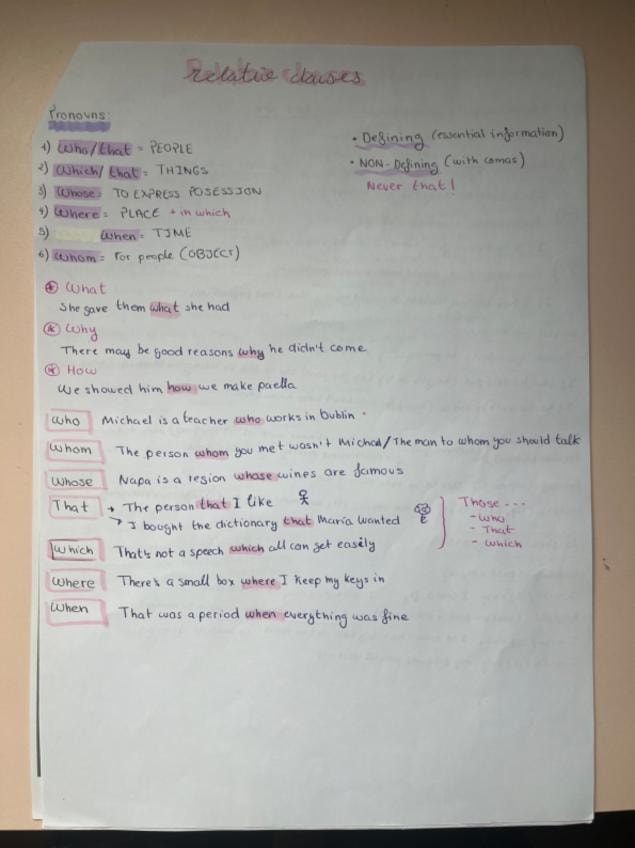 Relative clauses
Pronouns:
1) Who/that = PEOPLE
2) Which/that = THINGS
3) Whose: TO EXPRESS POSESSION
4) Where = PLACE + in which
5) When = TIME
6) Whom = For people (OBJECT)
• Defining (essential information)
• NON-Defining (with comas)
Never that!
* What
She gave them what she had
* Why
There may be good reasons why he didn't come
* How
We showed him how we make paella
Who Michael is a teacher who works in Dublin
Whom The person whom you met wasn't Michael/The man to whom you should talk
Whose Napa is a region whose wines are famous
That → The person that I like
→ I bought the dictionary that María wanted
Those ...
- Who
- That
- Which
Which That's not a speech which all can get easily
Where There's a small box where I keep my keys in
When That was a period when everything was fine